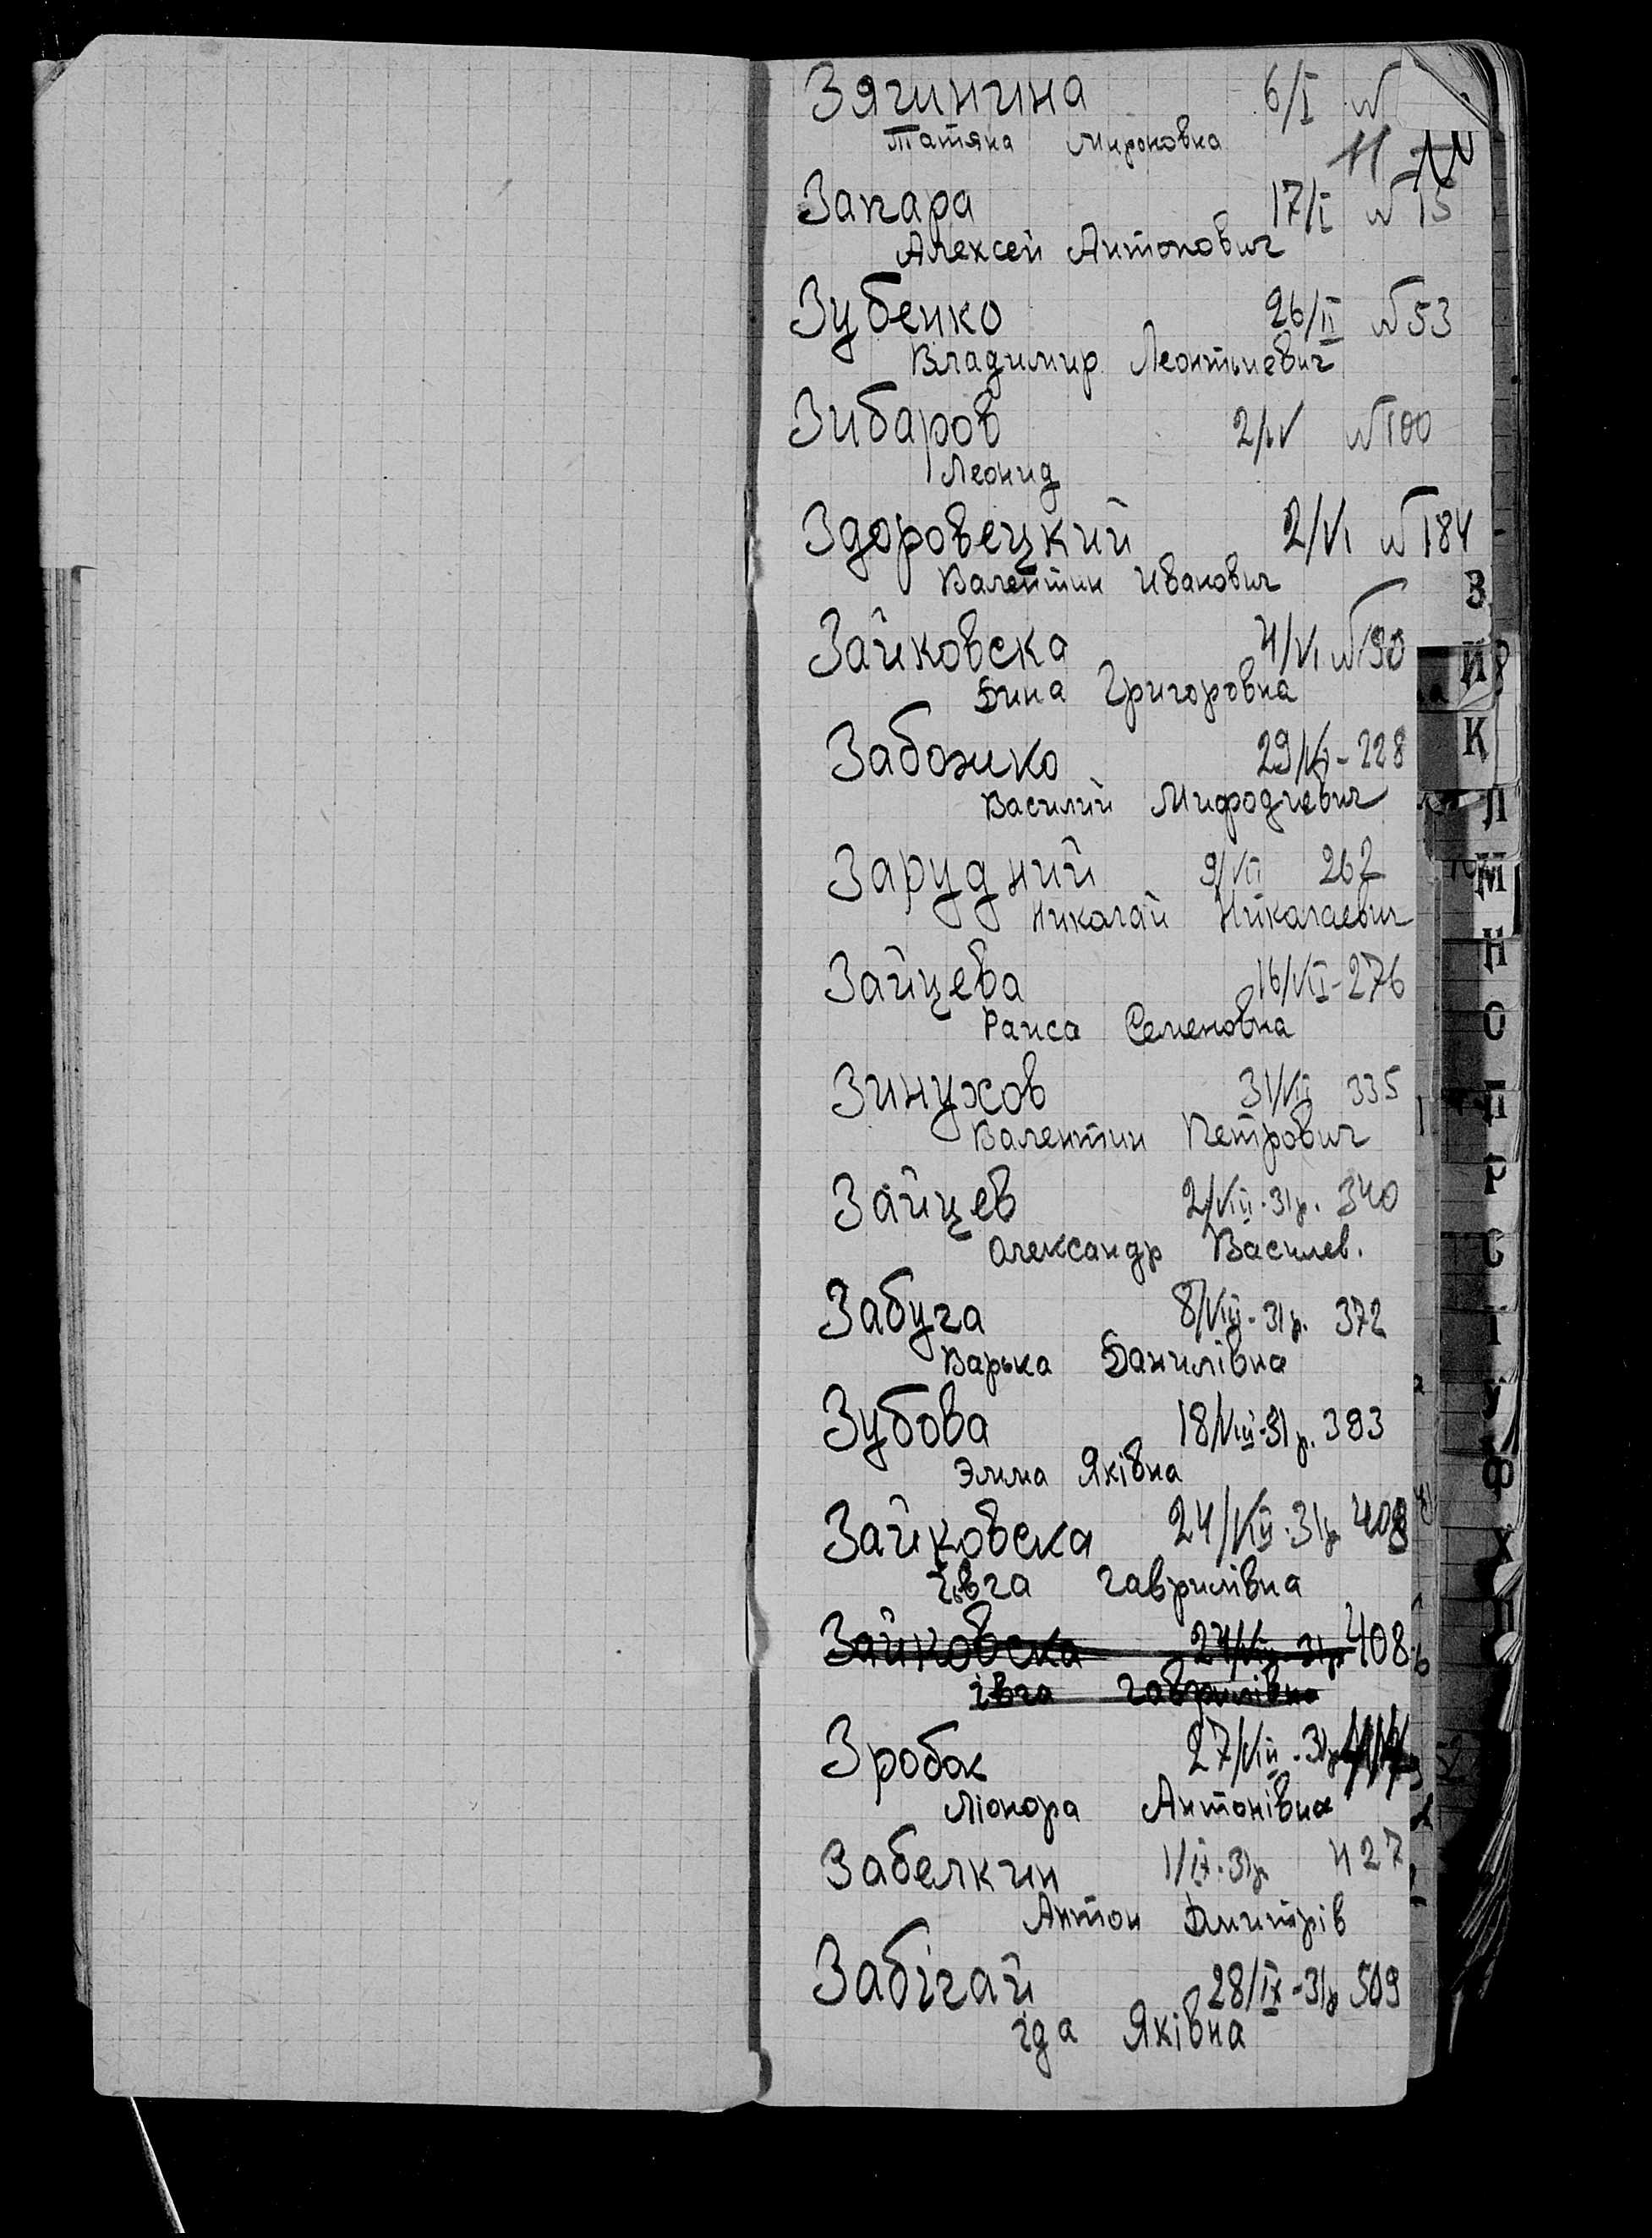 Зягинина 6/I №
Татяна Мироновна
11
Запара 17/I №15
Алексей Антонович
Зубенко 26/II №53
Владимир Леонтиевич
Зибаров 2/IV №100
Леонид
Здоровецкий 2/VI №184
Валентин Иванович
Зайковска 4/VI №190
Дина Григоровна
Забожко 29/VI-228
Василий Мифодиевич
Зарудний 9/VII 262
Николай Николаевич
Зайцева 16/VII-276
Раиса Семеновна
Зинухов 31/VII 335
Валентин Петрович
Зайцев 2/VIII-31р. 340
Олександр Василев.
Забуга 8/VIII-31р. 372
Варька Данилівна
Зубова 18/VIII-31р. 393
Элла Яківна
Зайковска 24/VIII-31р 408
Івга Гаврилівна
Зайковска 24/VIII-31р 408
Івга Гаврилівна
Зробок 27/VIII-31р
Ліонора Антонівна
Забелкин 1/IX-31р. 427
Антон Дмитрів
Забігай 28/IX-31р 509
Іда Яківна
З
И
К
Л
М
Н
О
П
Р
С
Т
У
Ф
Х